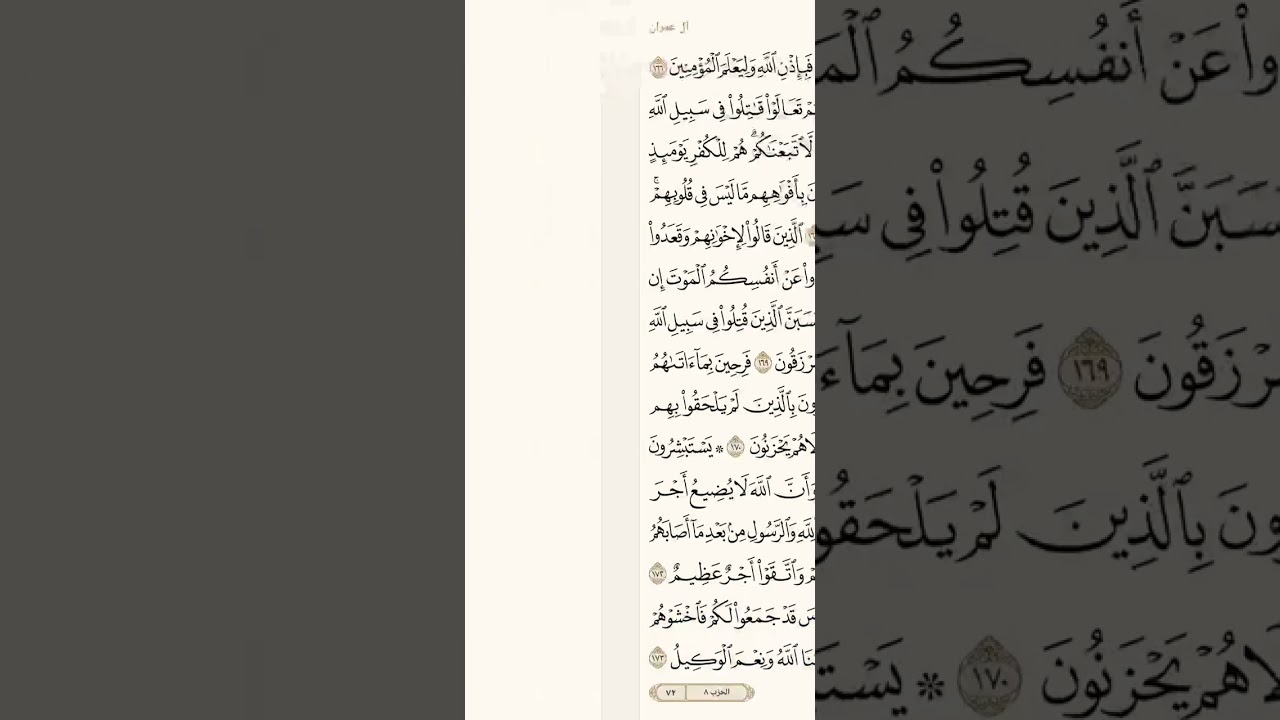 آل عمران
فَبِإِذْنِ ٱللَّهِ وَلِيَعْلَمَ ٱلْمُؤْمِنِينَ ١٦٦
تَعَالَوْا۟ قَـٰتِلُوا۟ فِى سَبِيلِ ٱللَّهِ
لَّٱتَّبَعْنَـٰكُمْ ۗ هُمْ لِلْكُفْرِ يَوْمَئِذٍ
بِأَفْوَٰهِهِم مَّا لَيْسَ فِى قُلُوبِهِمْ ۗ
ٱلَّذِينَ قَالُوا۟ لِإِخْوَٰنِهِمْ وَقَعَدُوا۟
وا۟ عَنْ أَنفُسِكُمُ ٱلْمَوْتَ إِن
سَبَنَّ ٱلَّذِينَ قُتِلُوا۟ فِى سَبِيلِ ٱللَّهِ
رْزَقُونَ ١٦٩ فَرِحِينَ بِمَآ ءَاتَىٰهُمُ
ونَ بِٱلَّذِينَ لَمْ يَلْحَقُوا۟ بِهِم
لَا هُمْ يَحْزَنُونَ ١٧٠ ۞ يَسْتَبْشِرُونَ
وَأَنَّ ٱللَّهَ لَا يُضِيعُ أَجْرَ
لِلَّهِ وَٱلرَّسُولِ مِنۢ بَعْدِ مَآ أَصَابَهُمُ
وَٱتَّقَوْا۟ أَجْرٌ عَظِيمٌ ١٧٢
قَدْ جَمَعُوا۟ لَكُمْ فَٱخْشَوْهُمْ
نَا ٱللَّهُ وَنِعْمَ ٱلْوَكِيلُ ١٧٣
الحزب ٨
٧٢
وا۟ عَنْ أَنفُسِكُمُ ٱلْمَ
سَبَنَّ ٱلَّذِينَ قُتِلُوا۟ فِى سَ
رْزَقُونَ ١٦٩ فَرِحِينَ بِمَآ ءَا
ونَ بِٱلَّذِينَ لَمْ يَلْحَقُو
لَا هُمْ يَحْزَنُونَ ١٧٠ ۞ يَسْتَ